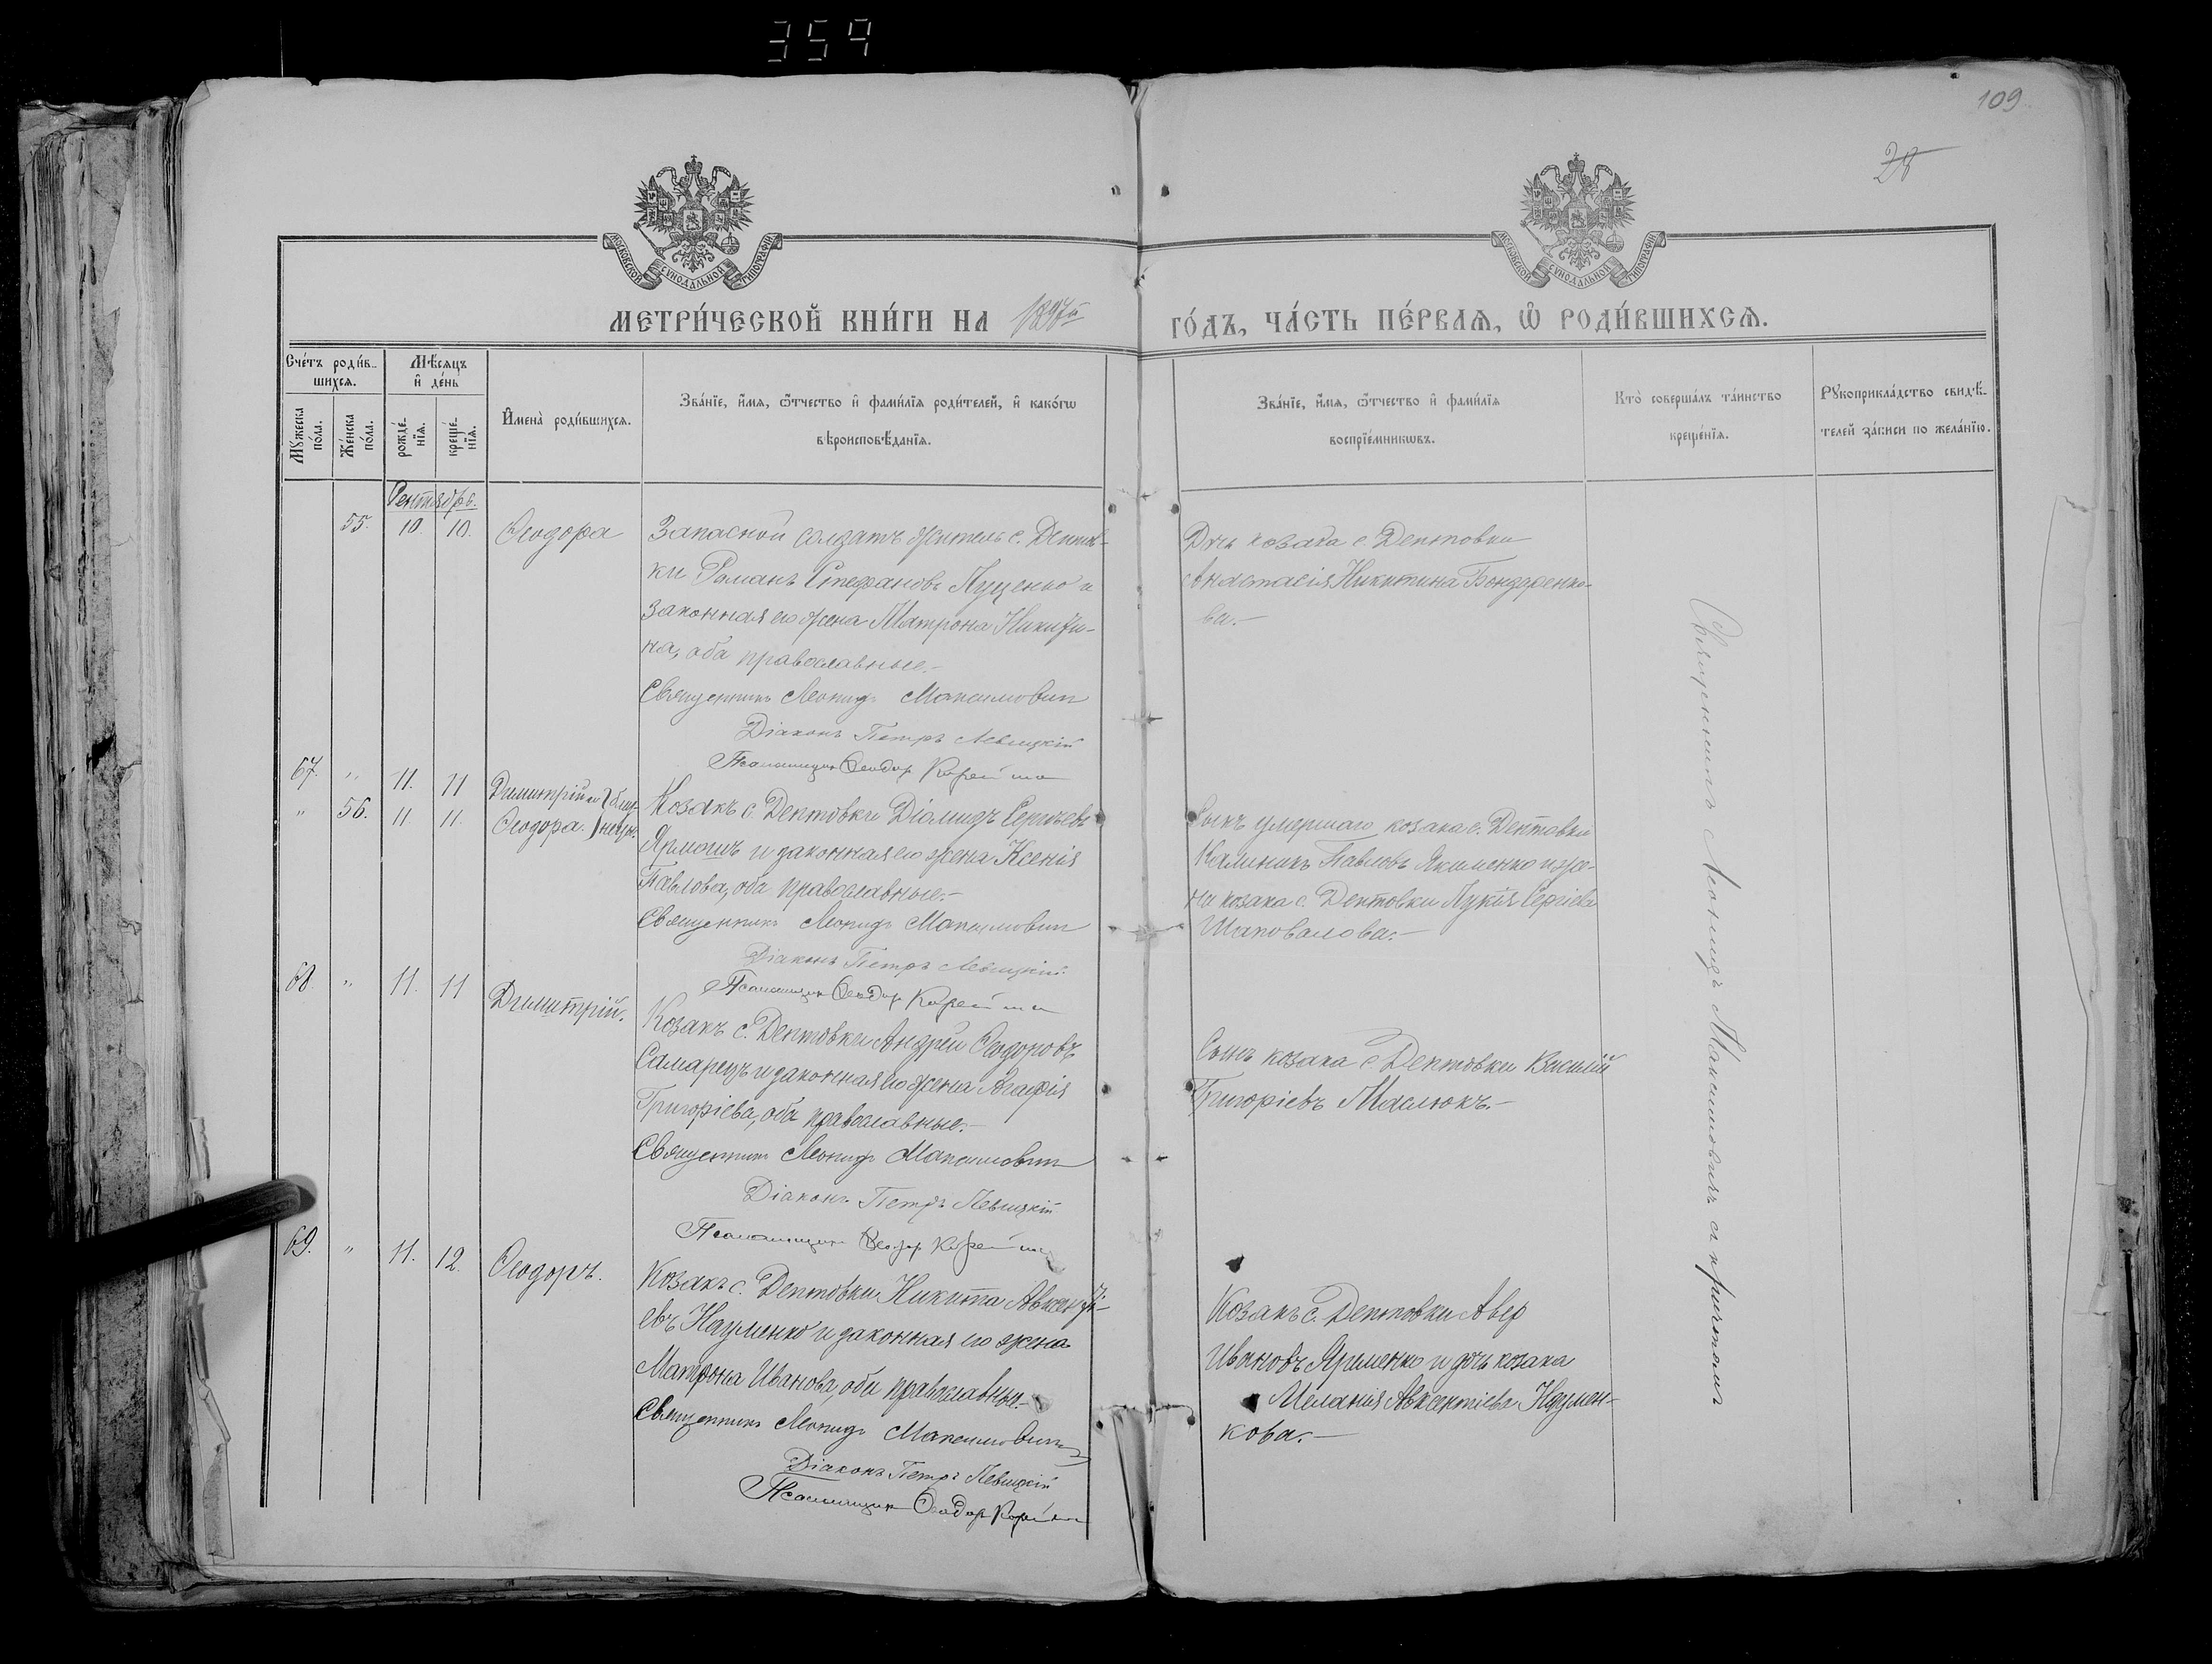 359
109
28
МОСКОВСКОЙ СѴНОДАЛЬНОЙ ТИПОГРАФІИ
МОСКОВСКОЙ СѴНОДАЛЬНОЙ ТИПОГРАФІИ
МЕТРИ́ЧЕСКОЙ КНИ́ГИ НА 1897й ГО́ДЪ, ЧА́СТЬ ПЕ́РВАѦ, Ѡ РОДИ́ВШИХСѦ.
Сче́тъ роди́в-
шихсѧ.
Мѣ́сѧцъ
и де́нь
Мꙋ́жеска
по́ла.
Же́нска
по́ла.
рожде́-
нїѧ.
креще́-
нїѧ.
И҆мена̀ роди́вшихсѧ.
Зва́нїе, и҆́мѧ, ѻ҆́тчество и҆ фами́лїѧ роди́телей, и҆ како́гѡ
вѣроисповѣ́данїѧ.
Зва́нїе, и҆́мѧ, ѻ҆́тчество и҆ фами́лїѧ
воспрїе́мникѡвъ.
Кто̀ соверша́лъ та́инство
креще́нїѧ.
Рꙋкоприкла́дство свидѣ́-
телей за́писи по жела́нїю.
Сентябрь.
55. 10. 10. Ѳеодора
Запасной солдатъ житель с. Дептов-
ки Романъ Стефановъ Луценко и
законная его жена Матрона Никити-
на, оба православные.-
Священникъ Леонидъ Максимович
Діаконъ Петръ Левицкій
Псаломщик Ѳеодор
Дчь козака с. Дептовки
Анастасія Никитина Бондаренко-
ва.-
67. " 11. 11 Димитрій и
" 56. 11 11. Ѳеодора.
Козакъ с. Дептовки Діомидъ Сергѣевъ
Ярмошъ и законная его жена Ксенія
Павлова, оба православные.-
Священникъ Леонидъ Максимович
Діаконъ Петръ Левицкій.
Псаломщик Ѳеодор
Сынъ умершаго козака с. Дептовки
Калиникъ Павловъ Якименко и же-
на козака с. Дептовки Лукія Сергіева
Шаповалова.-
68. " 11. 11 Димитрій.
Козакъ с. Дептовки Андрей Ѳеодоровъ
Самарецъ и законная его жена Агафія
Григоріева, оба православные.-
Священникъ Леонидъ Максимович
Діаконъ Петръ Левицкій
Псаломщик Ѳеодор
Сынъ козака с. Дептовки Василій
Григоріевъ Маслюкъ.-
69. " 11. 12. Ѳеодоръ.
Козакъ с. Дептовки Никита Авксенті-
евъ Науменко и законная его жена
Матрона Иванова, оба православные.-
Священникъ Леонидъ Максимович
Діаконъ Петръ Левицкій
Псаломщик Ѳеодор
Козакъ с. Дептовки Авер
Ивановъ Яременко и дочь козака
Меланія Авксентіева Наумен-
кова.-
Священникъ Леонидъ Максимовичъ съ причтомъ